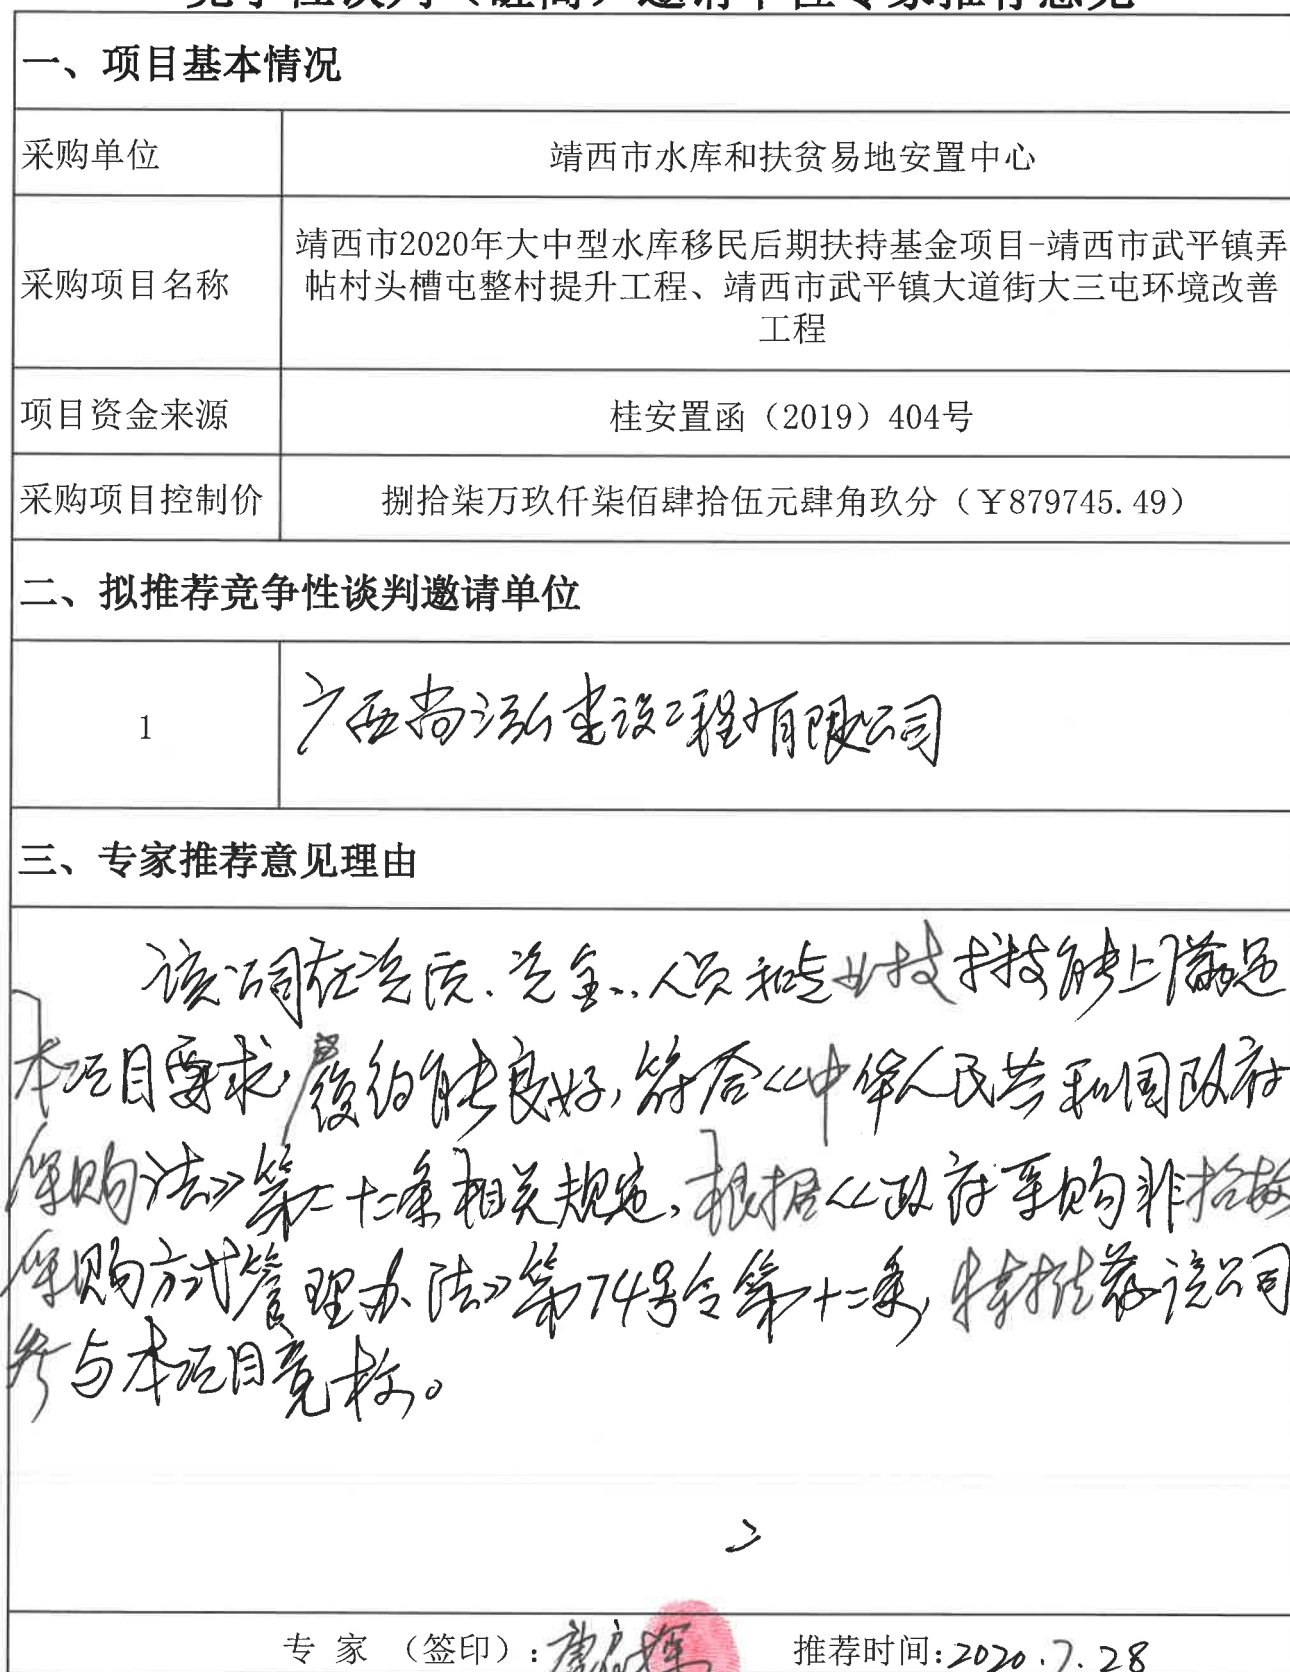 竞争性谈判（磋商）邀请单位专家推荐意见
一、项目基本情况
采购单位
靖西市水库和扶贫易地安置中心
采购项目名称
靖西市2020年大中型水库移民后期扶持基金项目-靖西市武平镇弄
帖村头槽屯整村提升工程、靖西市武平镇大道街大三屯环境改善
工程
项目资金来源
桂安置函（2019）404号
采购项目控制价
捌拾柒万玖仟柒佰肆拾伍元肆角玖分（￥879745.49）
二、拟推荐竞争性谈判邀请单位
1
广西尚泓建设工程有限公司
三、专家推荐意见理由
该公司在资质、资金、人员和专业技技能上满足
本项目要求，履约能良好，符合《中华人民共和国政府
采购法》第二十二条相关规定，根据《政府采购非招标
采购方式管理办法》第74号令第十二条，特推荐该公司
参与本项目竞标。
专 家 （签印）：
推荐时间:2020.7.28